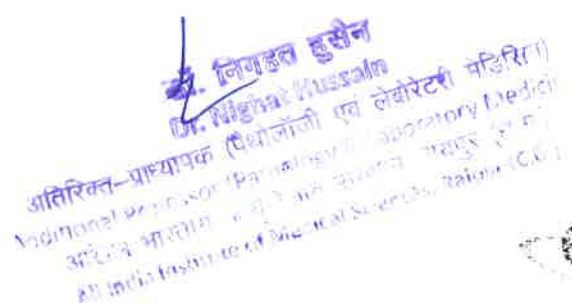 डॉ. निगहत हुसैन
Dr. Nighat Hussain
अतिरिक्त-प्राध्यापक (पैथोलॉजी एवं लेबोरेटरी मेडिसि
Additional Professor (Pathology & Laboratory Medici
रायपुर
All India Institute of Medical Sciences, Raipur (C.G.)